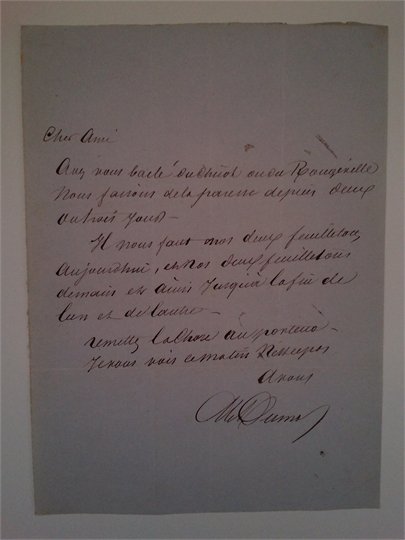 Cher Ami
Avez vous baclé du ou du Rougeville
Nous faisons de la paresse depuis deux
ou trois jours —
Il nous faut nos deux feuilletons
aujourd'hui, et nos deux feuilletons
demain et ainsi jusqu'à la fin de
l'un et de l'autre —
remettez la chose au porteur —
Je vous vois ce matin
A vous
Al Dumas